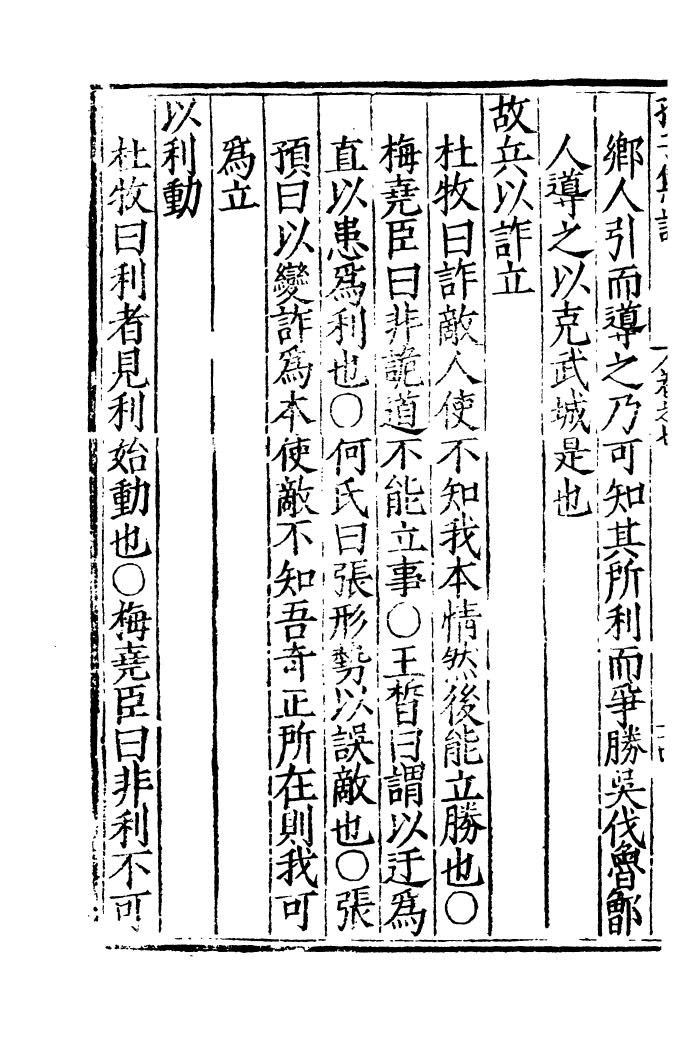 鄉人引而導之乃可知其所利而爭勝吳伐魯鄫
人導之以克武城是也
故兵以詐立
杜牧曰詐敵人使不知我本情然後能立勝也〇
梅堯臣曰非詭道不能立事〇王晳曰謂以迂爲
直以患爲利也〇何氏曰張形勢以誤敵也〇張
預曰以變詐爲本使敵不知吾奇正所在則我可
爲立
以利動
杜牧曰利者見利始動也〇梅堯臣曰非利不可